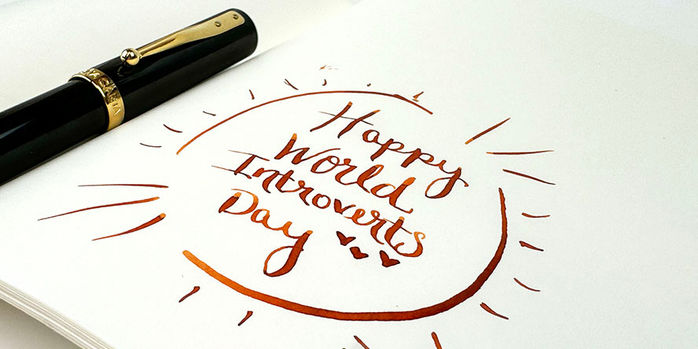 Happy
World
Introverts
Day